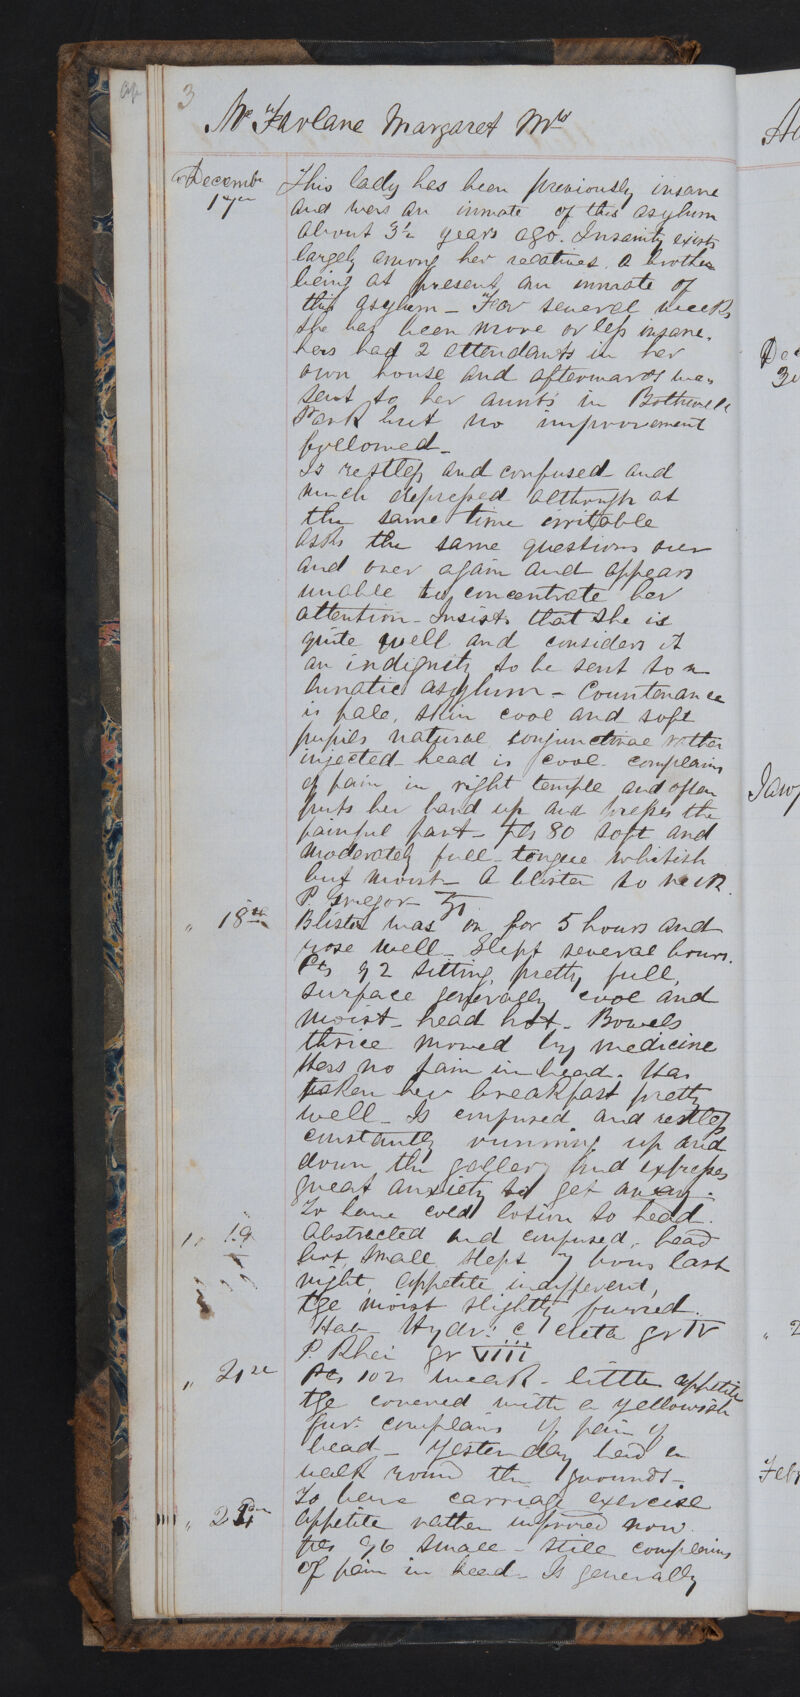 3
McFarlane Margaret Mrs
Decembr 17th
This lady has been previously insane
and was an inmate of this asylum
about 3½ years ago. Insanity exists
largely among her relatives. a brother
being at present an inmate of
this asylum - For several weeks
she has been more or less insane.
has had 2 attendants in her
own house and afterwards was
sent to her aunt's in Bothwell
Park but no improvement
followed -
Is restless and confused and
much depressed although at
the same time irritable
asks the same questions over
and over again and appears
unable to concentrate her
attention - Insists that she is
quite well and considers it
an indignity to be sent to a
lunatic asylum - Countenance
is pale, skin cool and soft
pupils natural conjunctivae rather
injected - head is cool - complains
of pain in right temple and often
puts her hand up and presses the
painful part - Pls 80 soft and
moderately full - tongue whitish
but moist - A blister to neck
P. Gregor ʒi
" 18th
Blister was on for 5 hours and
rose well - Slept several hours.
Pls 92 sitting, pretty full,
surface generally cool and
moist - head hot - Bowels
thrice moved by medicine
Has no pain in head. Has
taken her breakfast pretty
well - Is confused and restless
constantly running up and
down the gallery and expresses
great anxiety to get away.
To have cold lotion to head.
" 19
Abstracted and confused, head
hot, small slept 7 hours last
night, appetite indifferent,
tge moist slightly furred.
Hab Hydr: c Creta gr IV
P. Rhei gr VIII
" 21st
Pls 102 weak - little appetite
tge covered with a yellowish
fur. complains of pain of
head - Yesterday had a
walk round the grounds -
To have carriage exercise
"
Appetite rather improved now
pls 96 small - still complains
of pain in head - Is generally
Jany
Feby